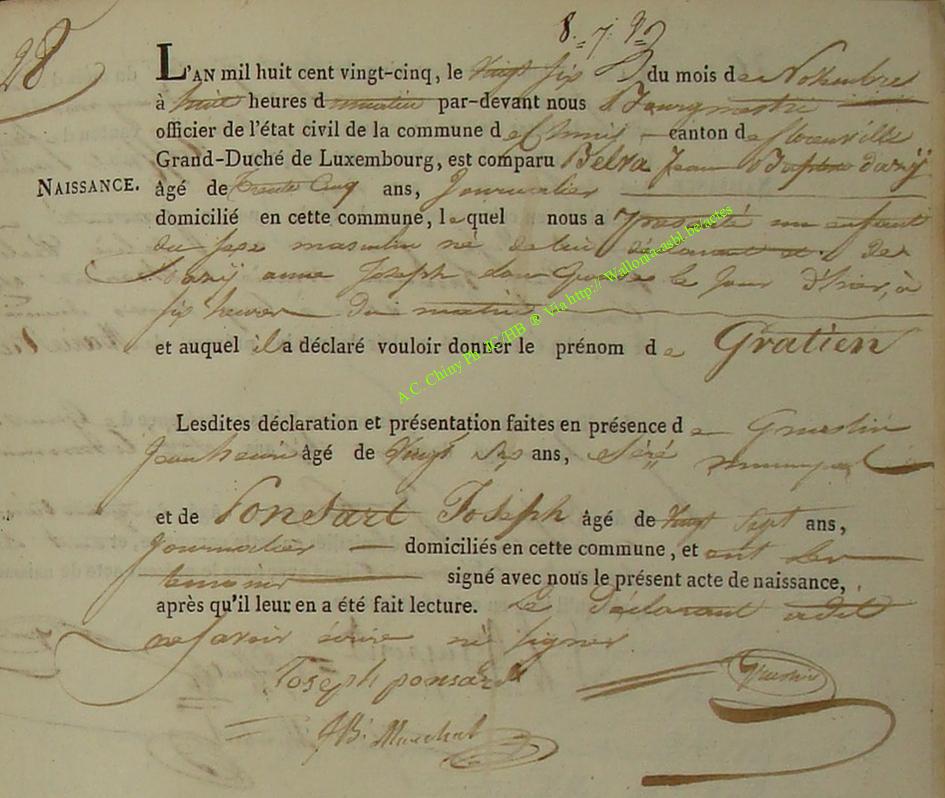 28
L'AN mil huit cent vingt-cinq, le Vingt six du mois de Novembre
à huit heures du matin par-devant nous Bourgmestre
officier de l'état civil de la commune de Chini canton de florenville
Grand-Duché de Luxembourg, est comparu Belva Jean Baptiste
NAISSANCE. âgé de trente Cinq ans, Journalier
domicilié en cette commune, lequel nous a presenté un enfant
du sexe masculin né de lui déclarant et de
anne Joseph son Epouse le Jour d'hier, à
six heures du matin
et auquel il a déclaré vouloir donner le prénom de Gratien
Lesdites déclaration et présentation faites en présence de
Jean henri âgé de Vingt six ans,
et de Ponsart Joseph âgé de Vingt Sept ans,
Journalier domiciliés en cette commune, et ont les
temoins signé avec nous le présent acte de naissance,
après qu'il leur en a été fait lecture. Le Déclarant a dit
ne savoir écrire ni signer
Joseph ponsard
JB. Marechal
A C. Chiny Ph JC/HB ® Via http://Wallonia-asbl.be/actes